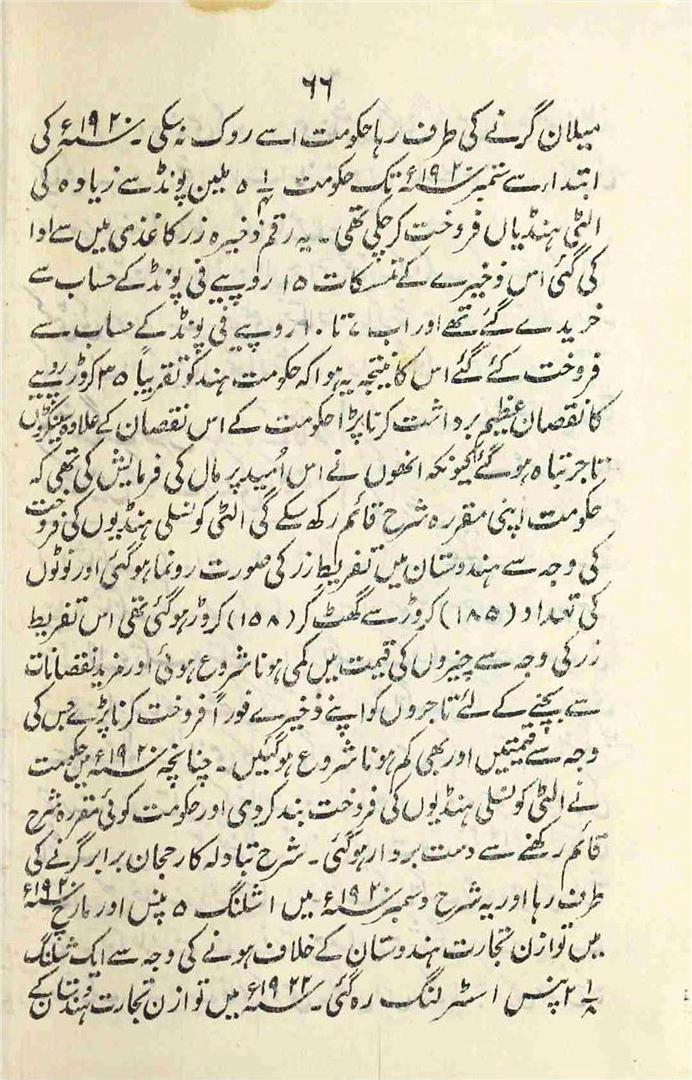 ۶۶
میلان گرنے کی طرف رہا حکومت اسے روک نہ سکی۔ سنہ ۱۹۲۰ء کی
ابتداء سے ستمبر سنہ ۱۹۲۰ء تک حکومت ۵ ۱/۴ بلین پونڈ سے زیادہ کی
الٹی ہنڈیاں فروخت کر چکی تھی۔ یہ رقم ذخیرہ زر کاغذی میں سے ادا
کی گئی اس ذخیرے کے تمسکات ۱۵ روپیے فی پونڈ کے حساب سے
خریدے گئے تھے اور اب ۷ تا ۱۰ روپیے فی پونڈ کے حساب سے
فروخت کئے گئے اس کا نتیجہ یہ ہوا کہ حکومت ہند کو تقریباً ۳۵ کروڑ روپیے
کا نقصان عظیم برداشت کرنا پڑا حکومت کے اس نقصان کے علاوہ سینکڑوں
تاجر تباہ ہو گئے کیونکہ انھوں نے اس اُمید پر مال کی فرمایش کی تھی کہ
حکومت اپنی مقررہ شرح قائم رکھ سکے گی الٹی کونسلی ہنڈیوں کی فروخت
کی وجہ سے ہندوستان میں تفریط زر کی صورت رونما ہو گئی اور نوٹوں
کی تعداد (۱۸۵) کروڑ سے گھٹ کر (۱۵۸) کروڑ ہو گئی تھی اس تفریط
زر کی وجہ سے چیزوں کی قیمت میں کمی ہونا شروع ہوئی اور مزید نقصانات
سے بچنے کے لئے تاجروں کو اپنے ذخیرے فوراً فروخت کرنا پڑے جس کی
وجہ سے قیمتیں اور بھی کم ہونا شروع ہو گئیں۔ چنانچہ سنہ ۱۹۲۰ء میں حکومت
نے الٹی کونسلی ہنڈیوں کی فروخت بند کر دی اور حکومت کوئی مقررہ شرح
قائم رکھنے سے دست بردار ہو گئی۔ شرح تبادلہ کا رحجان برابر گرنے کی
طرف رہا اور یہ شرح دسمبر سنہ ۱۹۲۰ء میں ۱ شلنگ ۵ پنس اور مارچ سنہ ۱۹۲۰ء
میں توازن تجارت ہندوستان کے خلاف ہونے کی وجہ سے ایک شلنگ
۲ ۱/۸ پنس اسٹرلنگ رہ گئی۔ سنہ ۱۹۲۲ء میں توازن تجارت ہندوستان کے